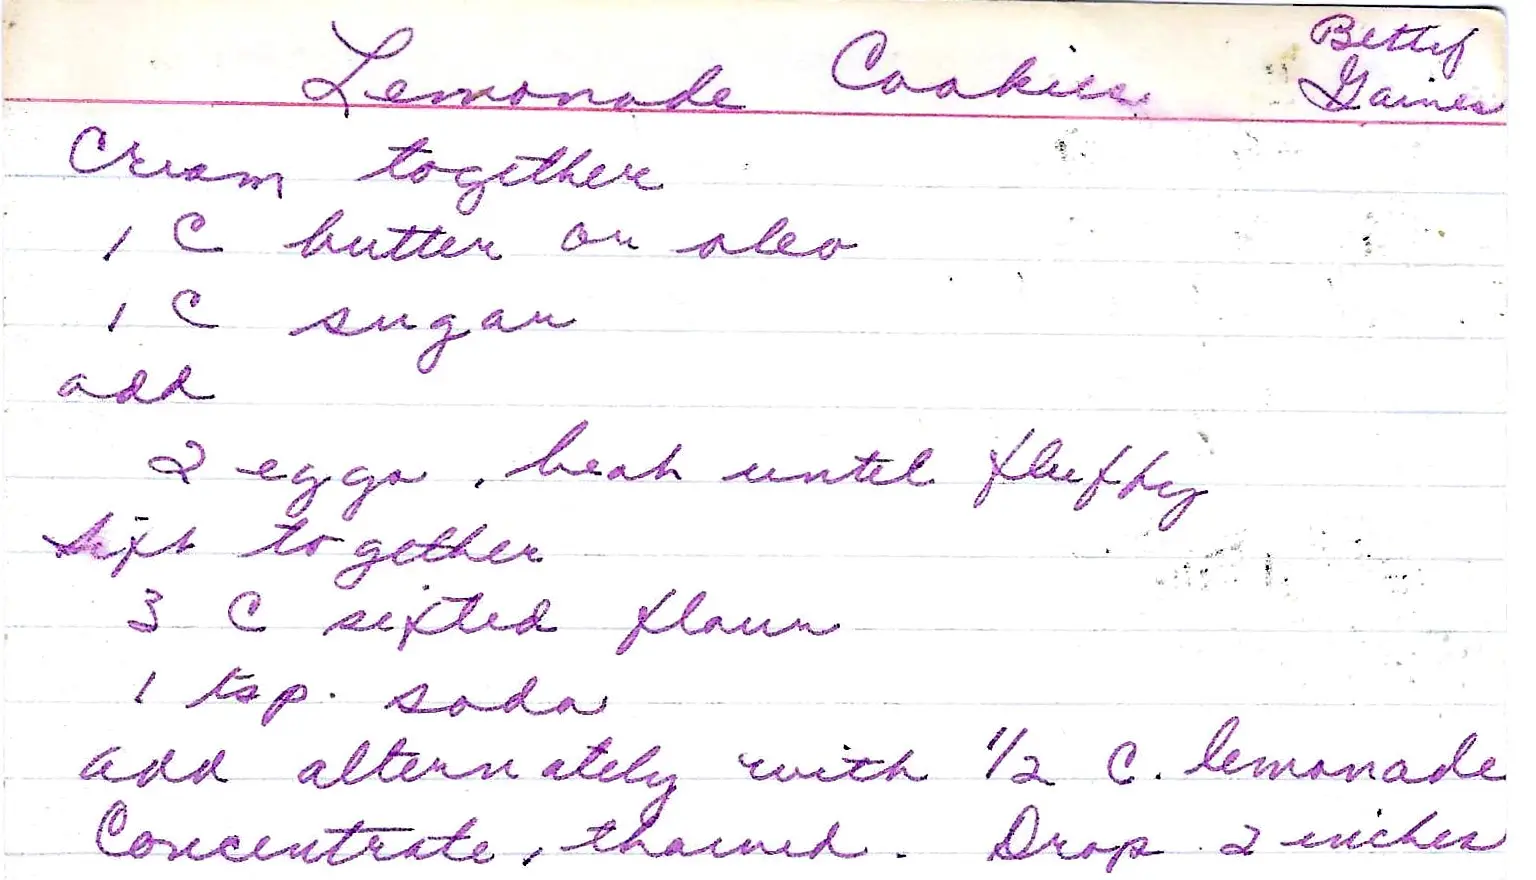 Lemonade Cookies Betty Gaines
Cream together
1 C butter or oleo
1 C sugar
add
2 eggs, beat until fluffy
Sift together
3 C sifted flour
1 tsp. soda
add alternately with 1/2 C. lemonade
Concentrate, thawed. Drop 2 inches